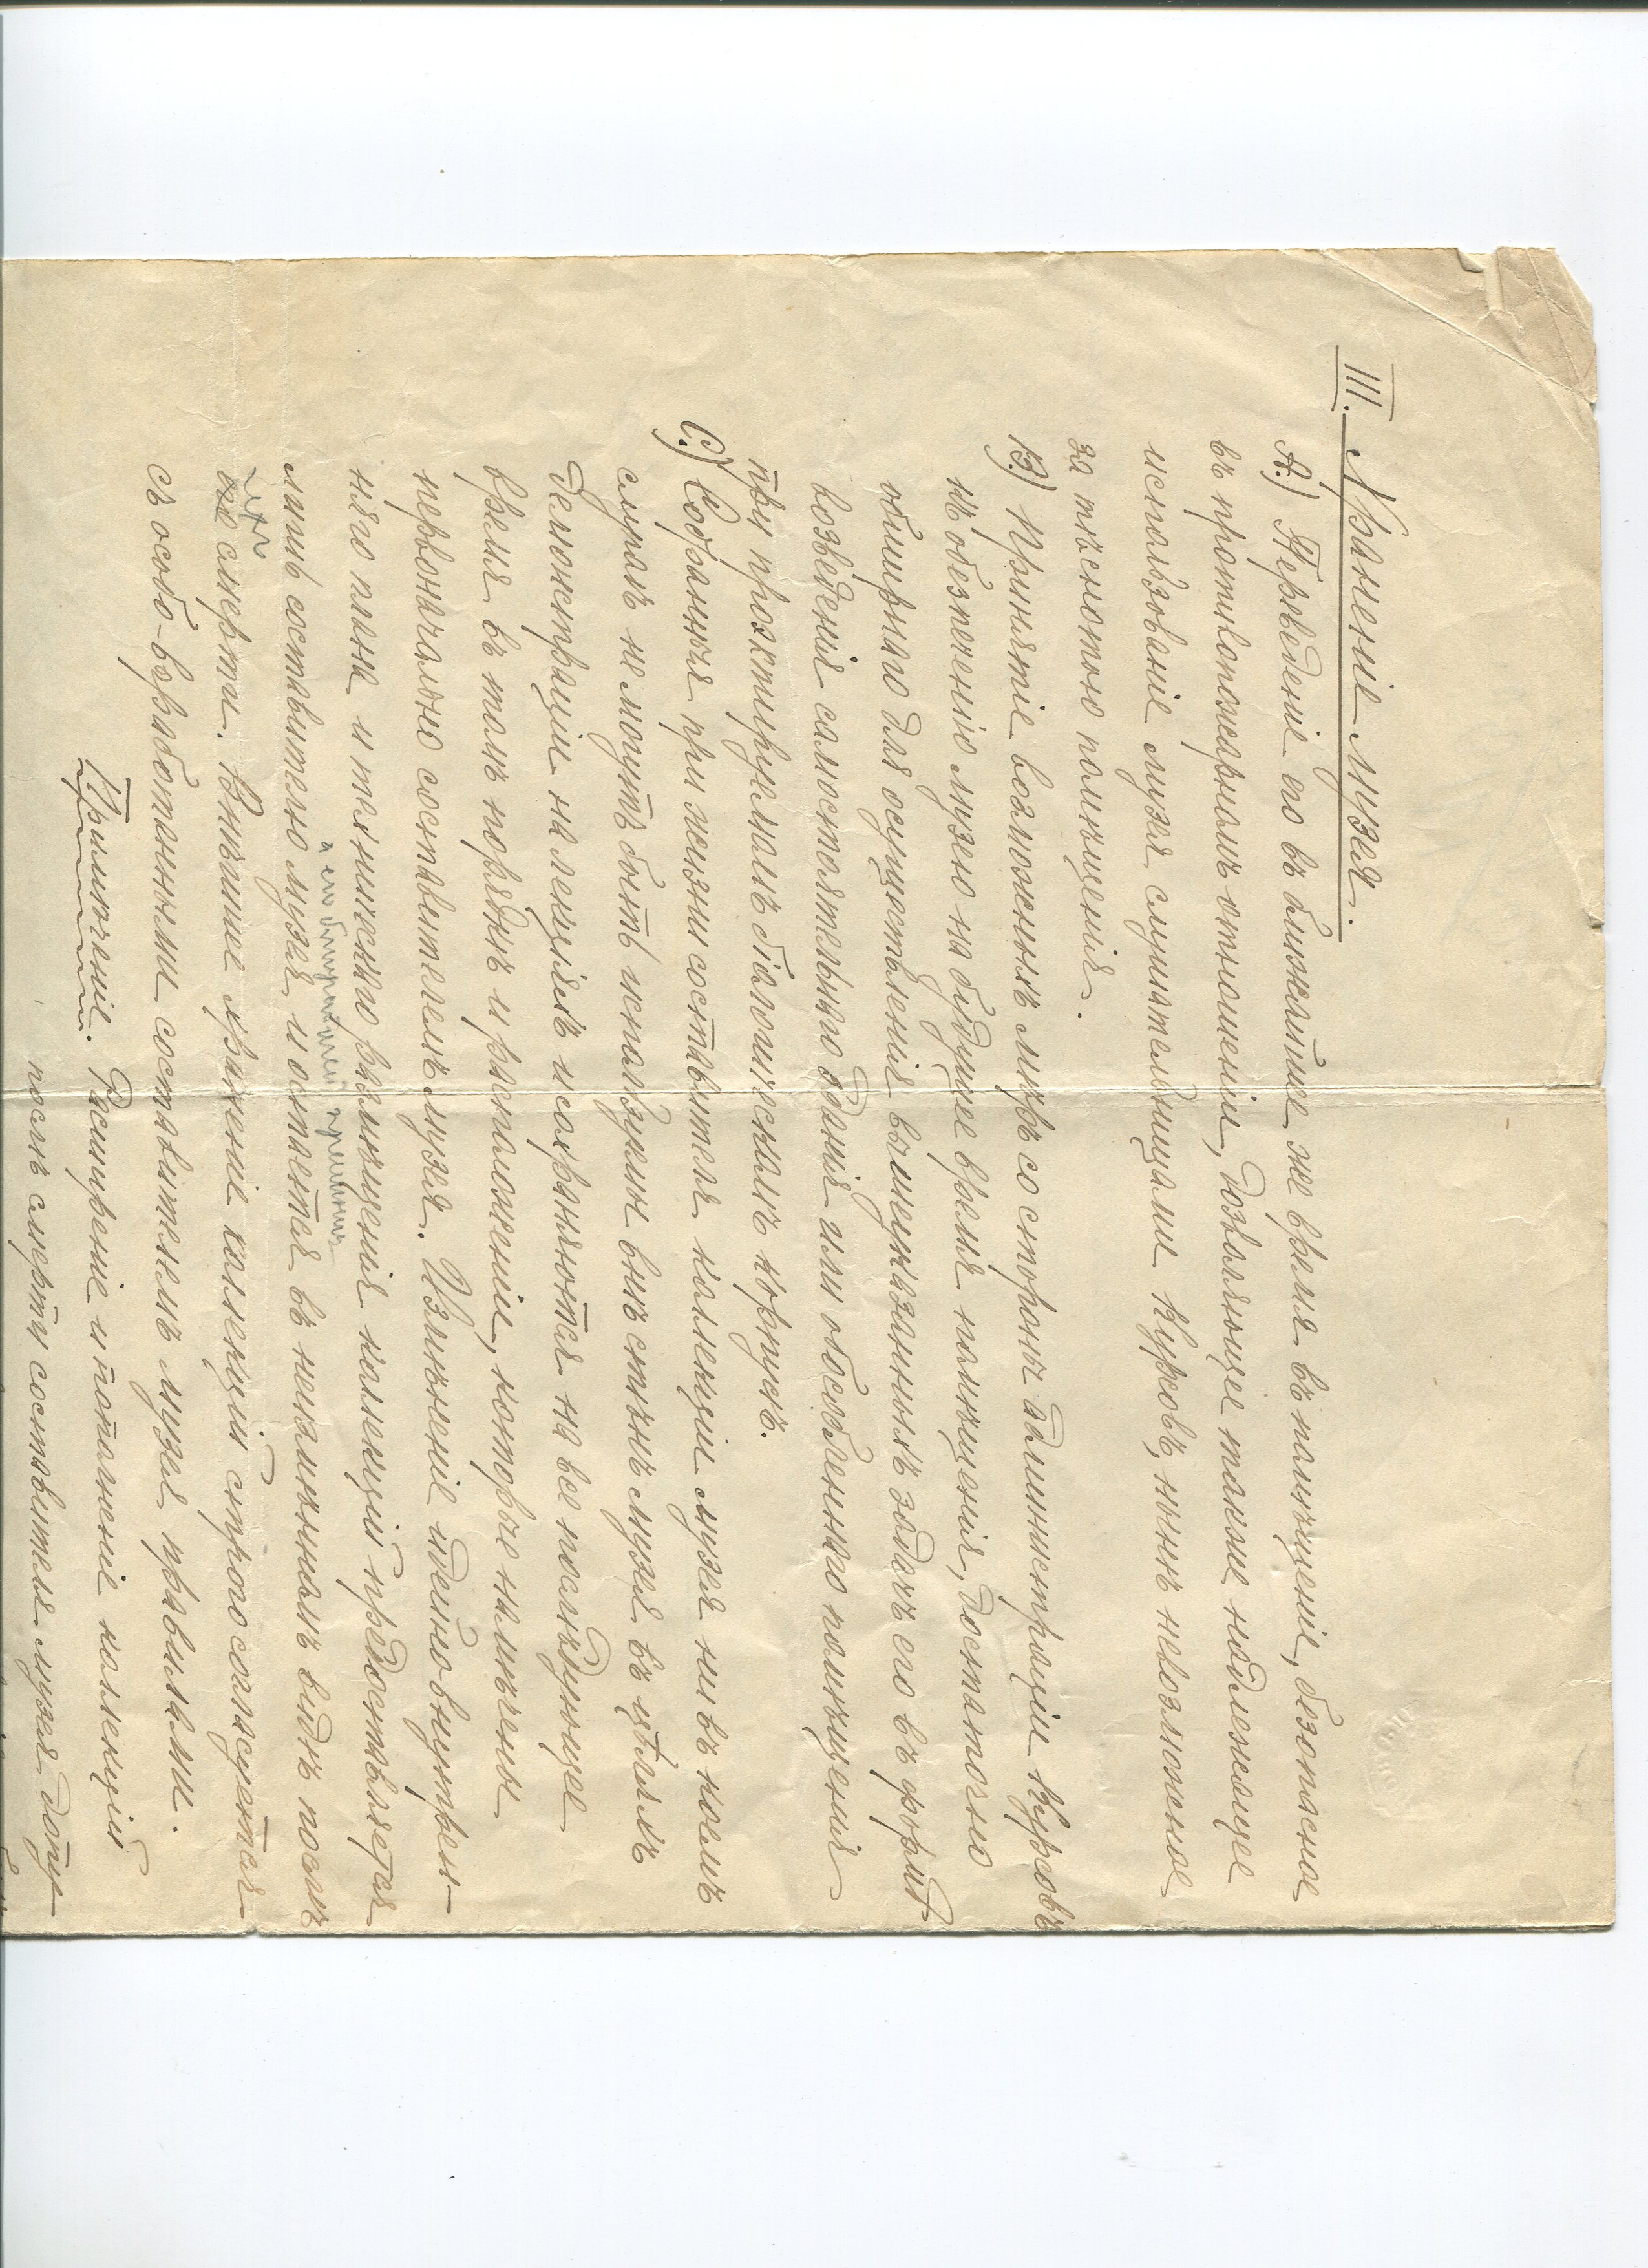 III. Храненіе музея.
А.) Переведеніе его въ ближайшее же время въ помѣщеніе, безопасное
въ противопожарномъ отношеніи, дозволяющее также надлежащее
использованіе музея слушательницами Курсовъ, нынѣ невозможное
за тѣснотою помѣщенія.
В.) Принятіе возможныхъ мѣръ со стороны администраціи Курсовъ
къ обезпеченію музею на будущее время помѣщенія, достаточно
обширнаго для осуществленія вышеуказанныхъ задачъ его въ формѣ
возведенія самостоятельнаго зданія или обособленнаго помѣщенія
при проэктируемомъ біологическомъ корпусѣ.
С.) Собранныя при жизни составителя коллекціи музея ни въ коемъ
случаѣ не могутъ быть используемы внѣ стѣнъ музея въ цѣляхъ
демонстраціи на лекціяхъ и сохраняются на все послѣдующее
время въ томъ порядкѣ и расположеніи, которые намѣчены
первоначально составителемъ музея. Измѣненіе идейно-внутрен-
няго плана и техническаго размѣщенія коллекцій предоставляется
лишь составителю музея и остается въ неизмѣнномъ видѣ послѣ
его смерти. Внѣшнее храненіе коллекцій строго согласуется
съ особо-выработанными составителемъ музея правилами.
Примѣчаніе. Расширеніе и пополненіе коллекцій
послѣ смерти составителя музея допу-